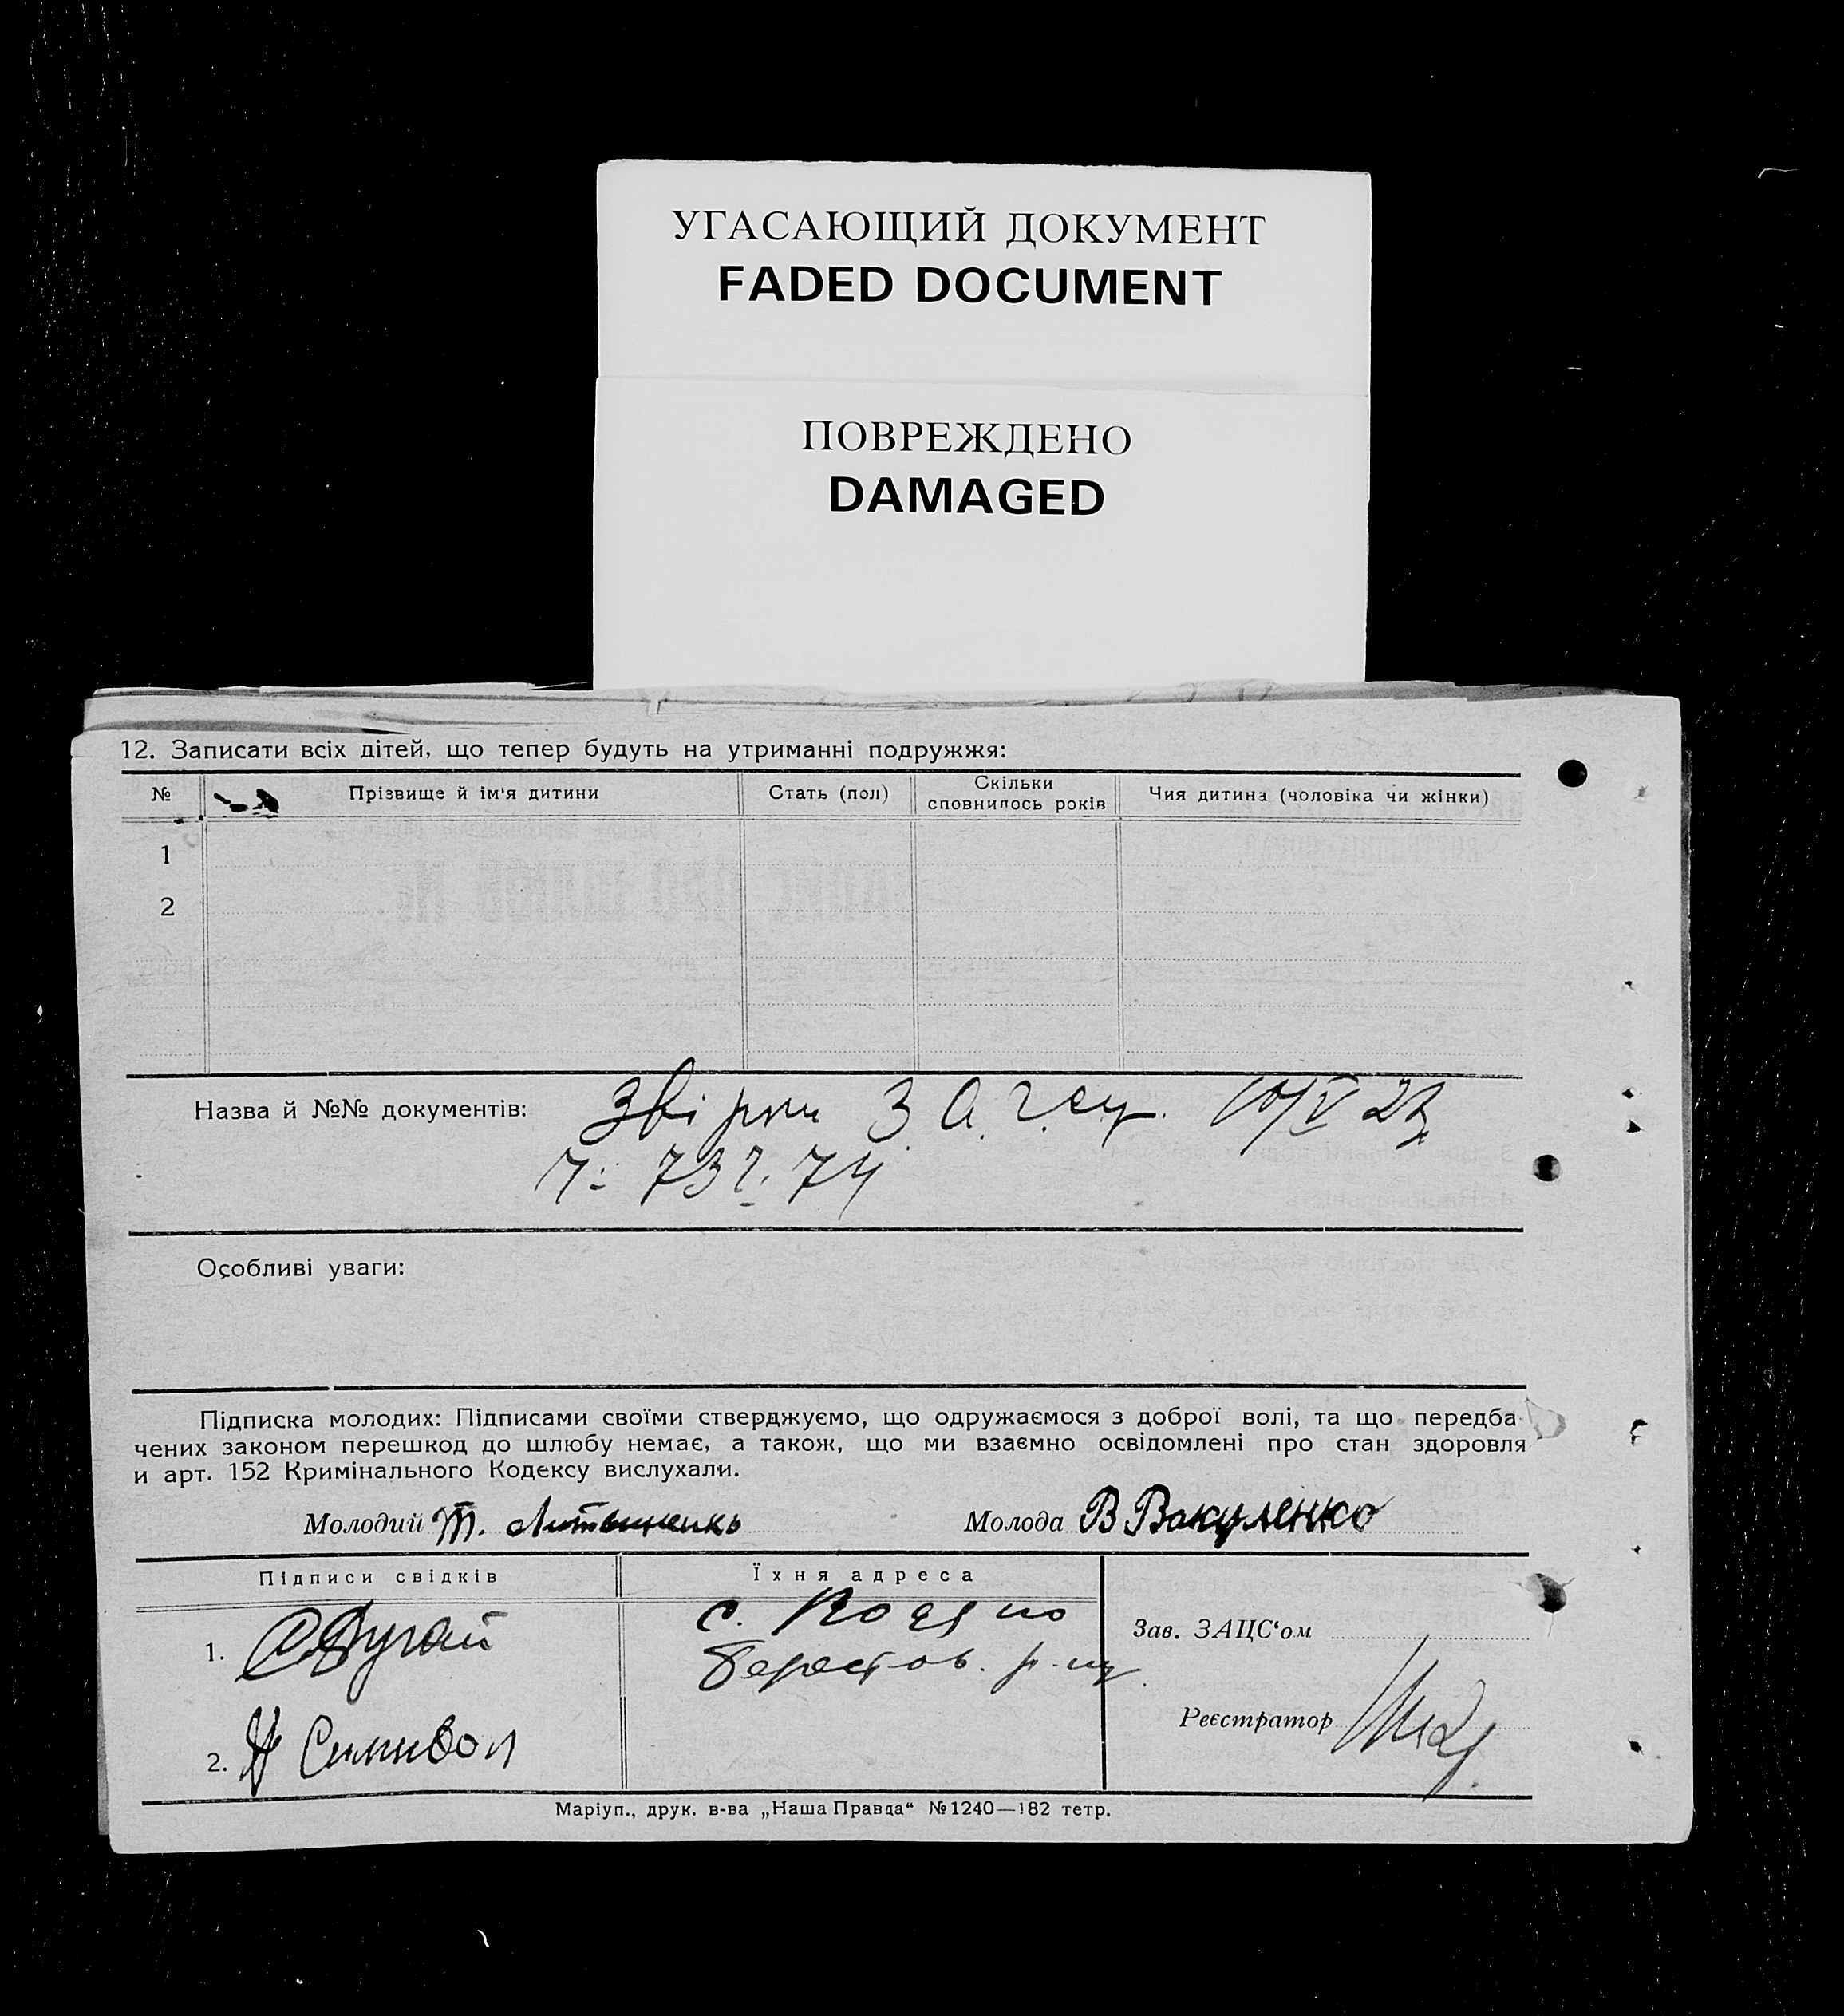 УГАСАЮЩИЙ ДОКУМЕНТ
FADED DOCUMENT
ПОВРЕЖДЕНО
DAMAGED
12. Записати всіх дітей, що тепер будуть на утриманні подружжя:
№ Прізвище й ім'я дитини Стать (пол) Скільки сповнилось років Чия дитина (чоловіка чи жінки)
1
2
Назва й №№ документів: 10/V 23
73 74
Особливі уваги:
Підписка молодих: Підписами своїми стверджуємо, що одружаємося з доброї волі, та що передба
чених законом перешкод до шлюбу немає, а також, що ми взаємно освідомлені про стан здоровля
и арт. 152 Кримінального Кодексу вислухали.
Молодий Т. Литвиненко Молода В Вакуленко
Підписи свідків Їхня адреса
1. с.
Зав. ЗАЦС'ом
Реєстратор
2.
Маріуп., друк. в-ва „Наша Правда“ №1240—182 тетр.